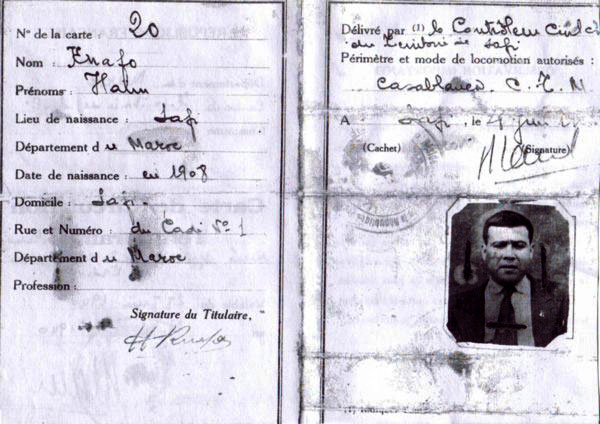 N° de la carte : 20
Nom : Knafo
Prénoms : Haïm
Lieu de naissance : Safi
Département du Maroc
Date de naissance : en 1908
Domicile : Safi
Rue et Numéro : du Cadi N° 1
Département du Maroc
Profession :
Signature du Titulaire,
H Knafo
Délivré par (1) le Contrôleur Civil
du Territoire de Safi
Périmètre et mode de locomotion autorisés :
Casablanca C. F. M
A Safi, le
(Cachet) (Signature)